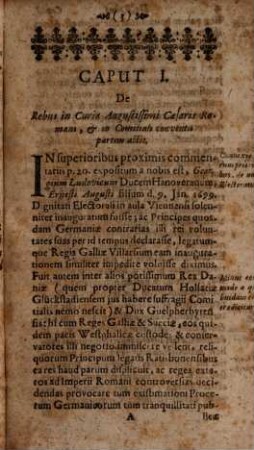 (1)
CAPUT I.
De
Rebus in Curia Augustissimi Cæsaris Ro-
mani, & in Comitiali conventu
partim actis.
IN superioribus proximis commen-
tatus p. 20. expositum a nobis est, Geor-
gium Ludovicum Ducem Hanoveranum
Ernesti Augusti filium d. 9. Jan. 1699.
Dignitati Electorali in aula Viennensi solen-
niter inauguratum fuisse; ac Principes quos-
dam Germaniæ contrarias illi rei volunta-
tes suas per id tempus declarasse, legatum-
que Regis Galliæ Villarsium eam inaugura-
tionem similiter impedire voluisse diximus.
Fuit autem inter alios potissimum Rex Da-
niæ (quem propter Ducatum Hollatiæ
Glückstadiensem jus habere suffragii Comi-
tialis nemo nescit) & Dux Guelpherbyten-
sis: hi cum Reges Galliæ & Sueciæ, eos qui-
dem pacis Westphalicæ custodes, &
rantes illi negotio velent, reli-
quorum Principum legatis Ratisbonensibus
ea res haud parum displicuit, ac reges exte-
ros ad Imperii Romani controversias deci-
dendas provocare cum existimatione Prin-
cipum Germanorum tum tranquillitati pub-
A
licæ